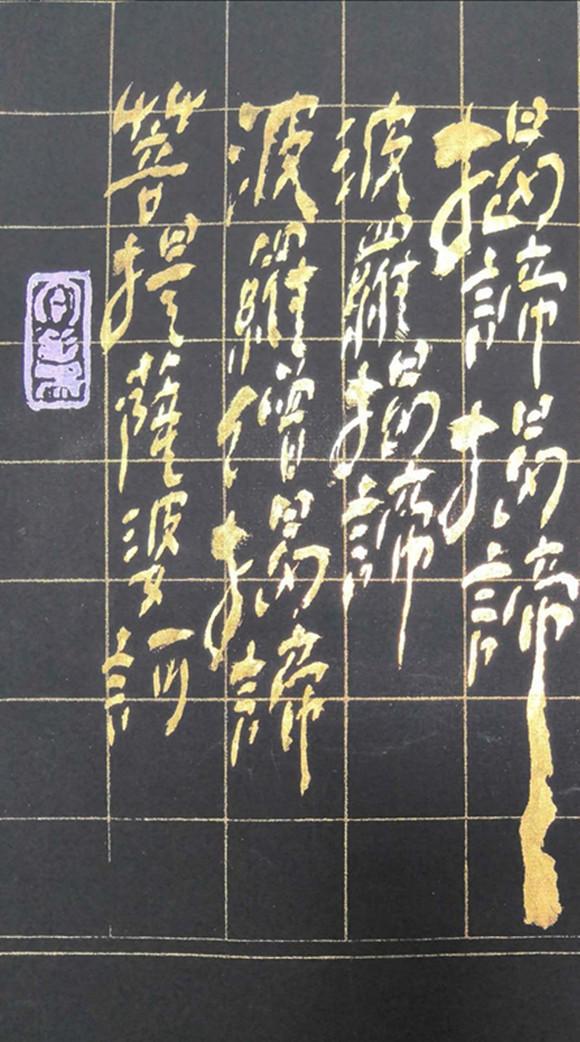 揭諦揭諦
波羅揭諦
波羅僧揭諦
菩提薩婆訶